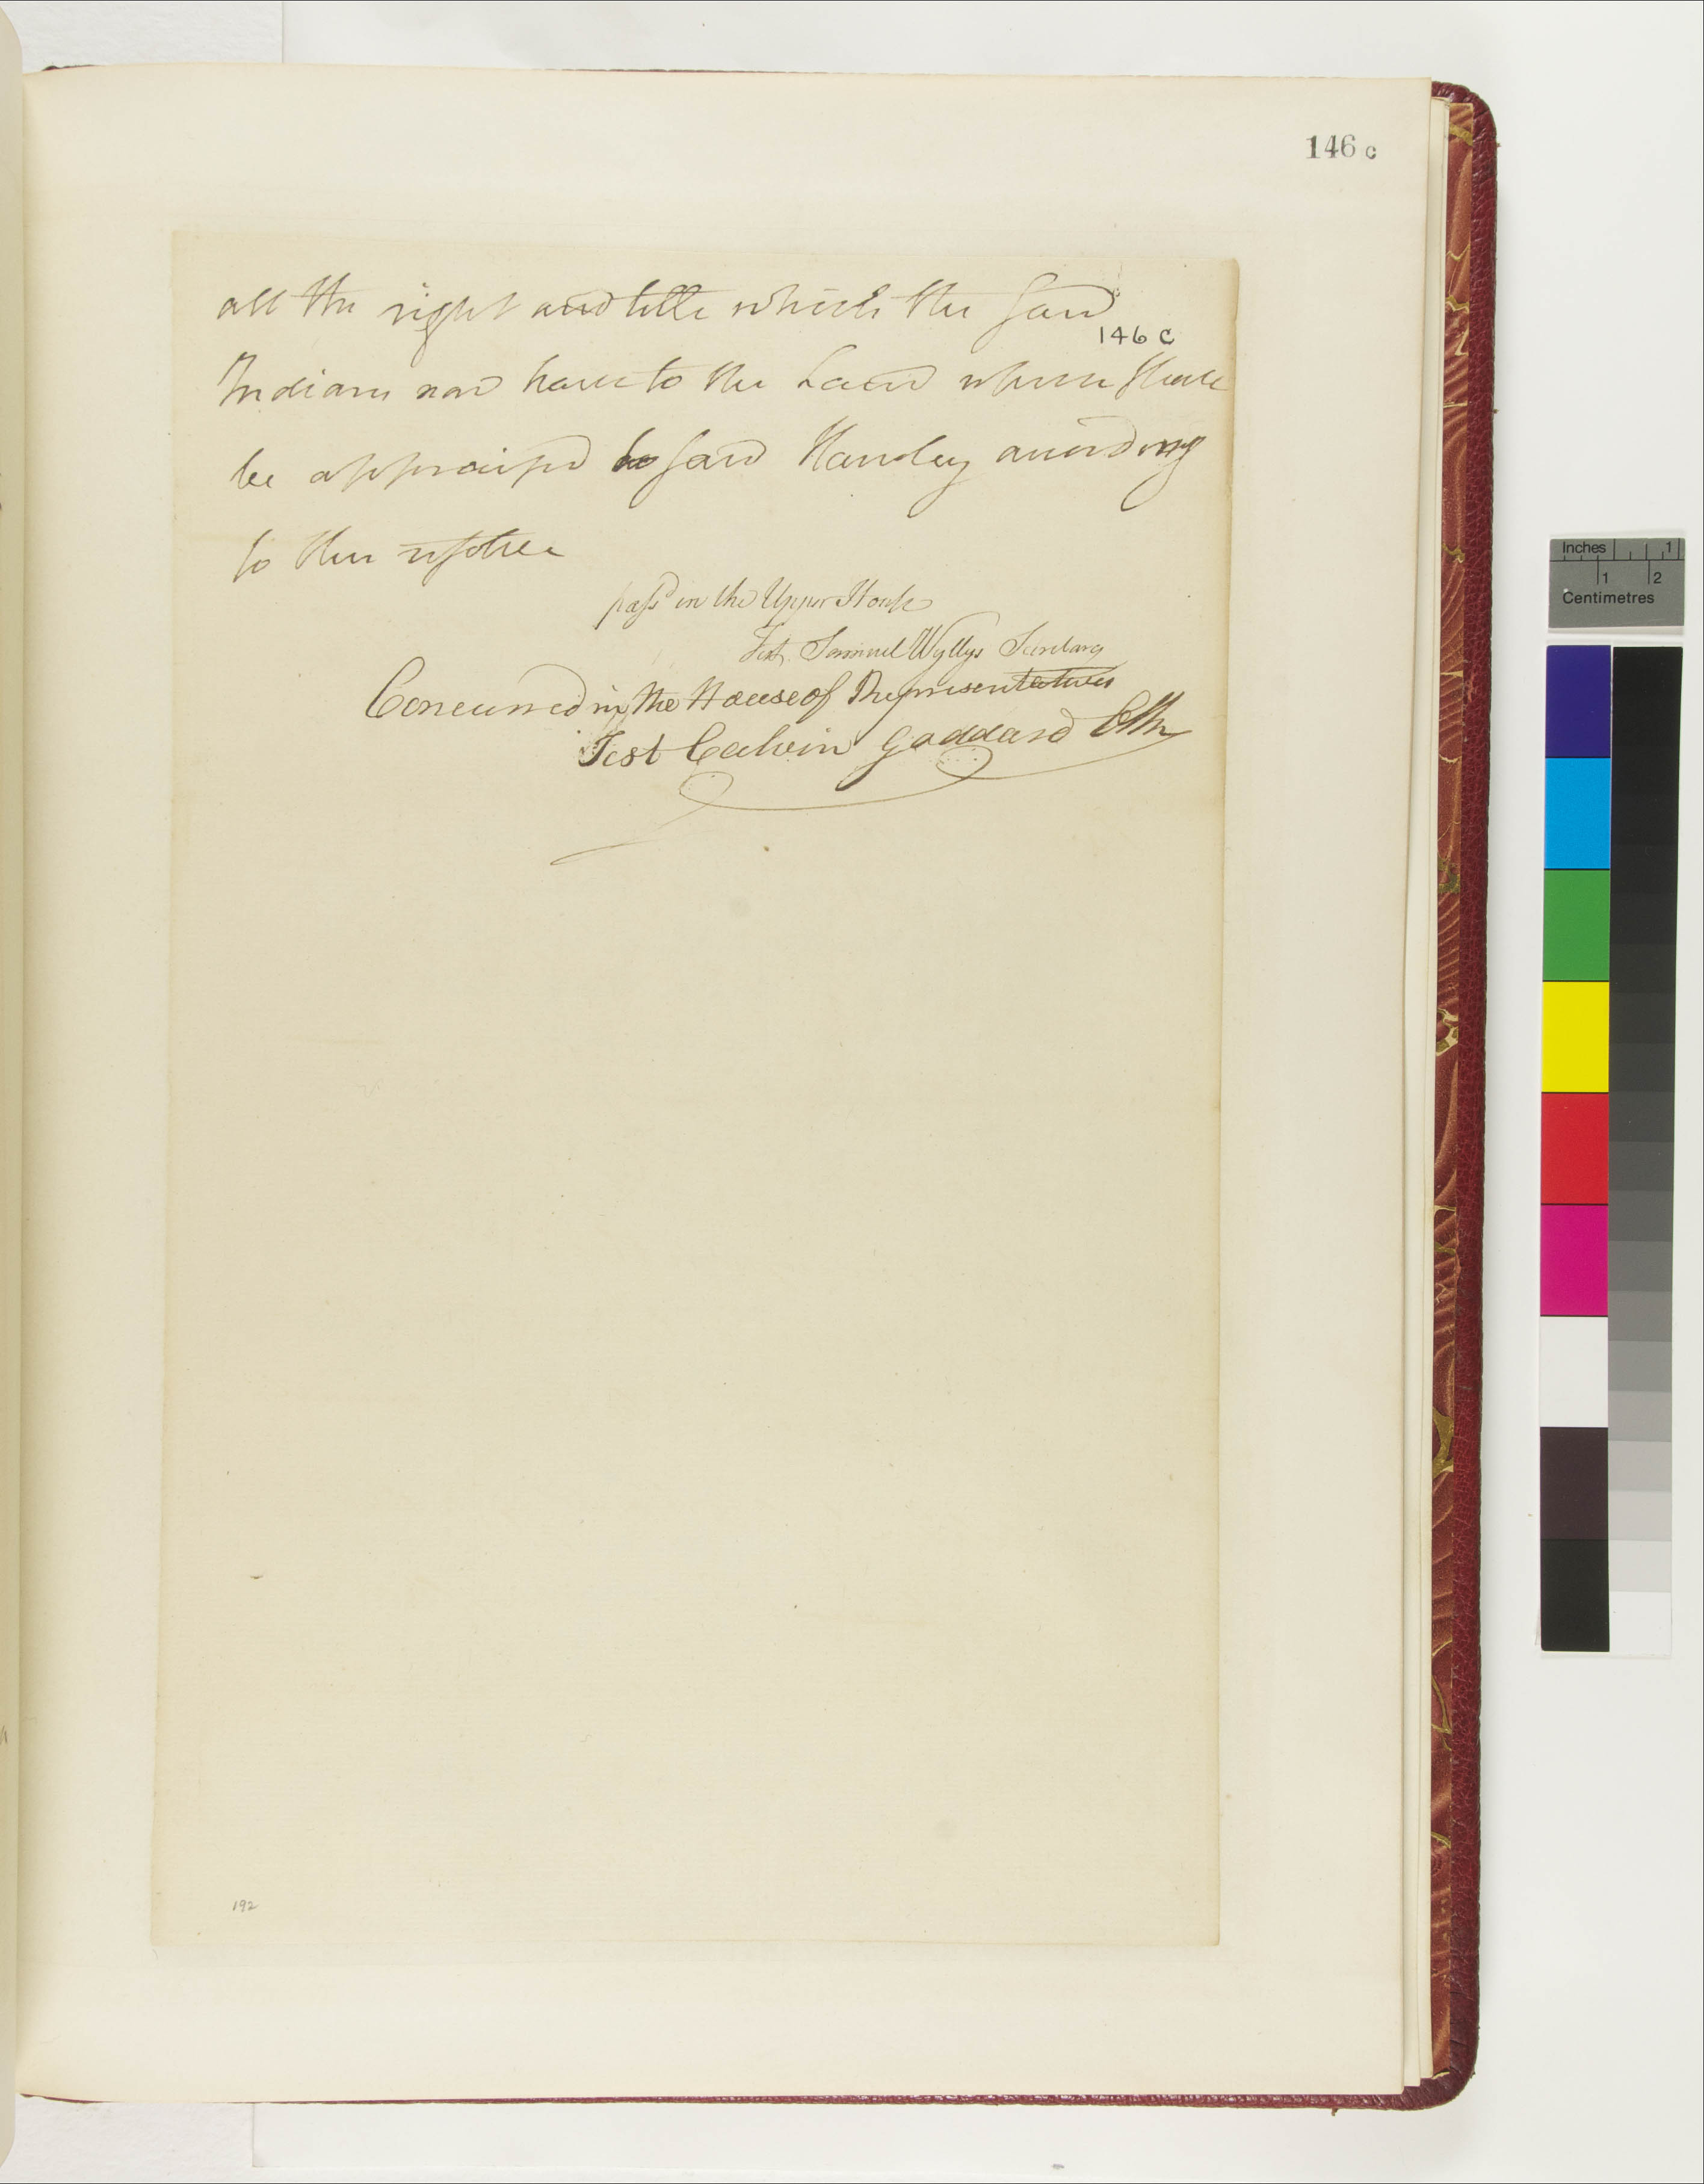 146 c
all the right and title which the said
146 C
Indians now have to the Land which shall
be appraised to said Hawley according
to this resolve
pass'd in the Upper House
Test. Samuel Wyllys Secretary
Concurred in the House of Representatives
Test Calvin Goddard Clk
192
Inches 1
1 2
Centimetres